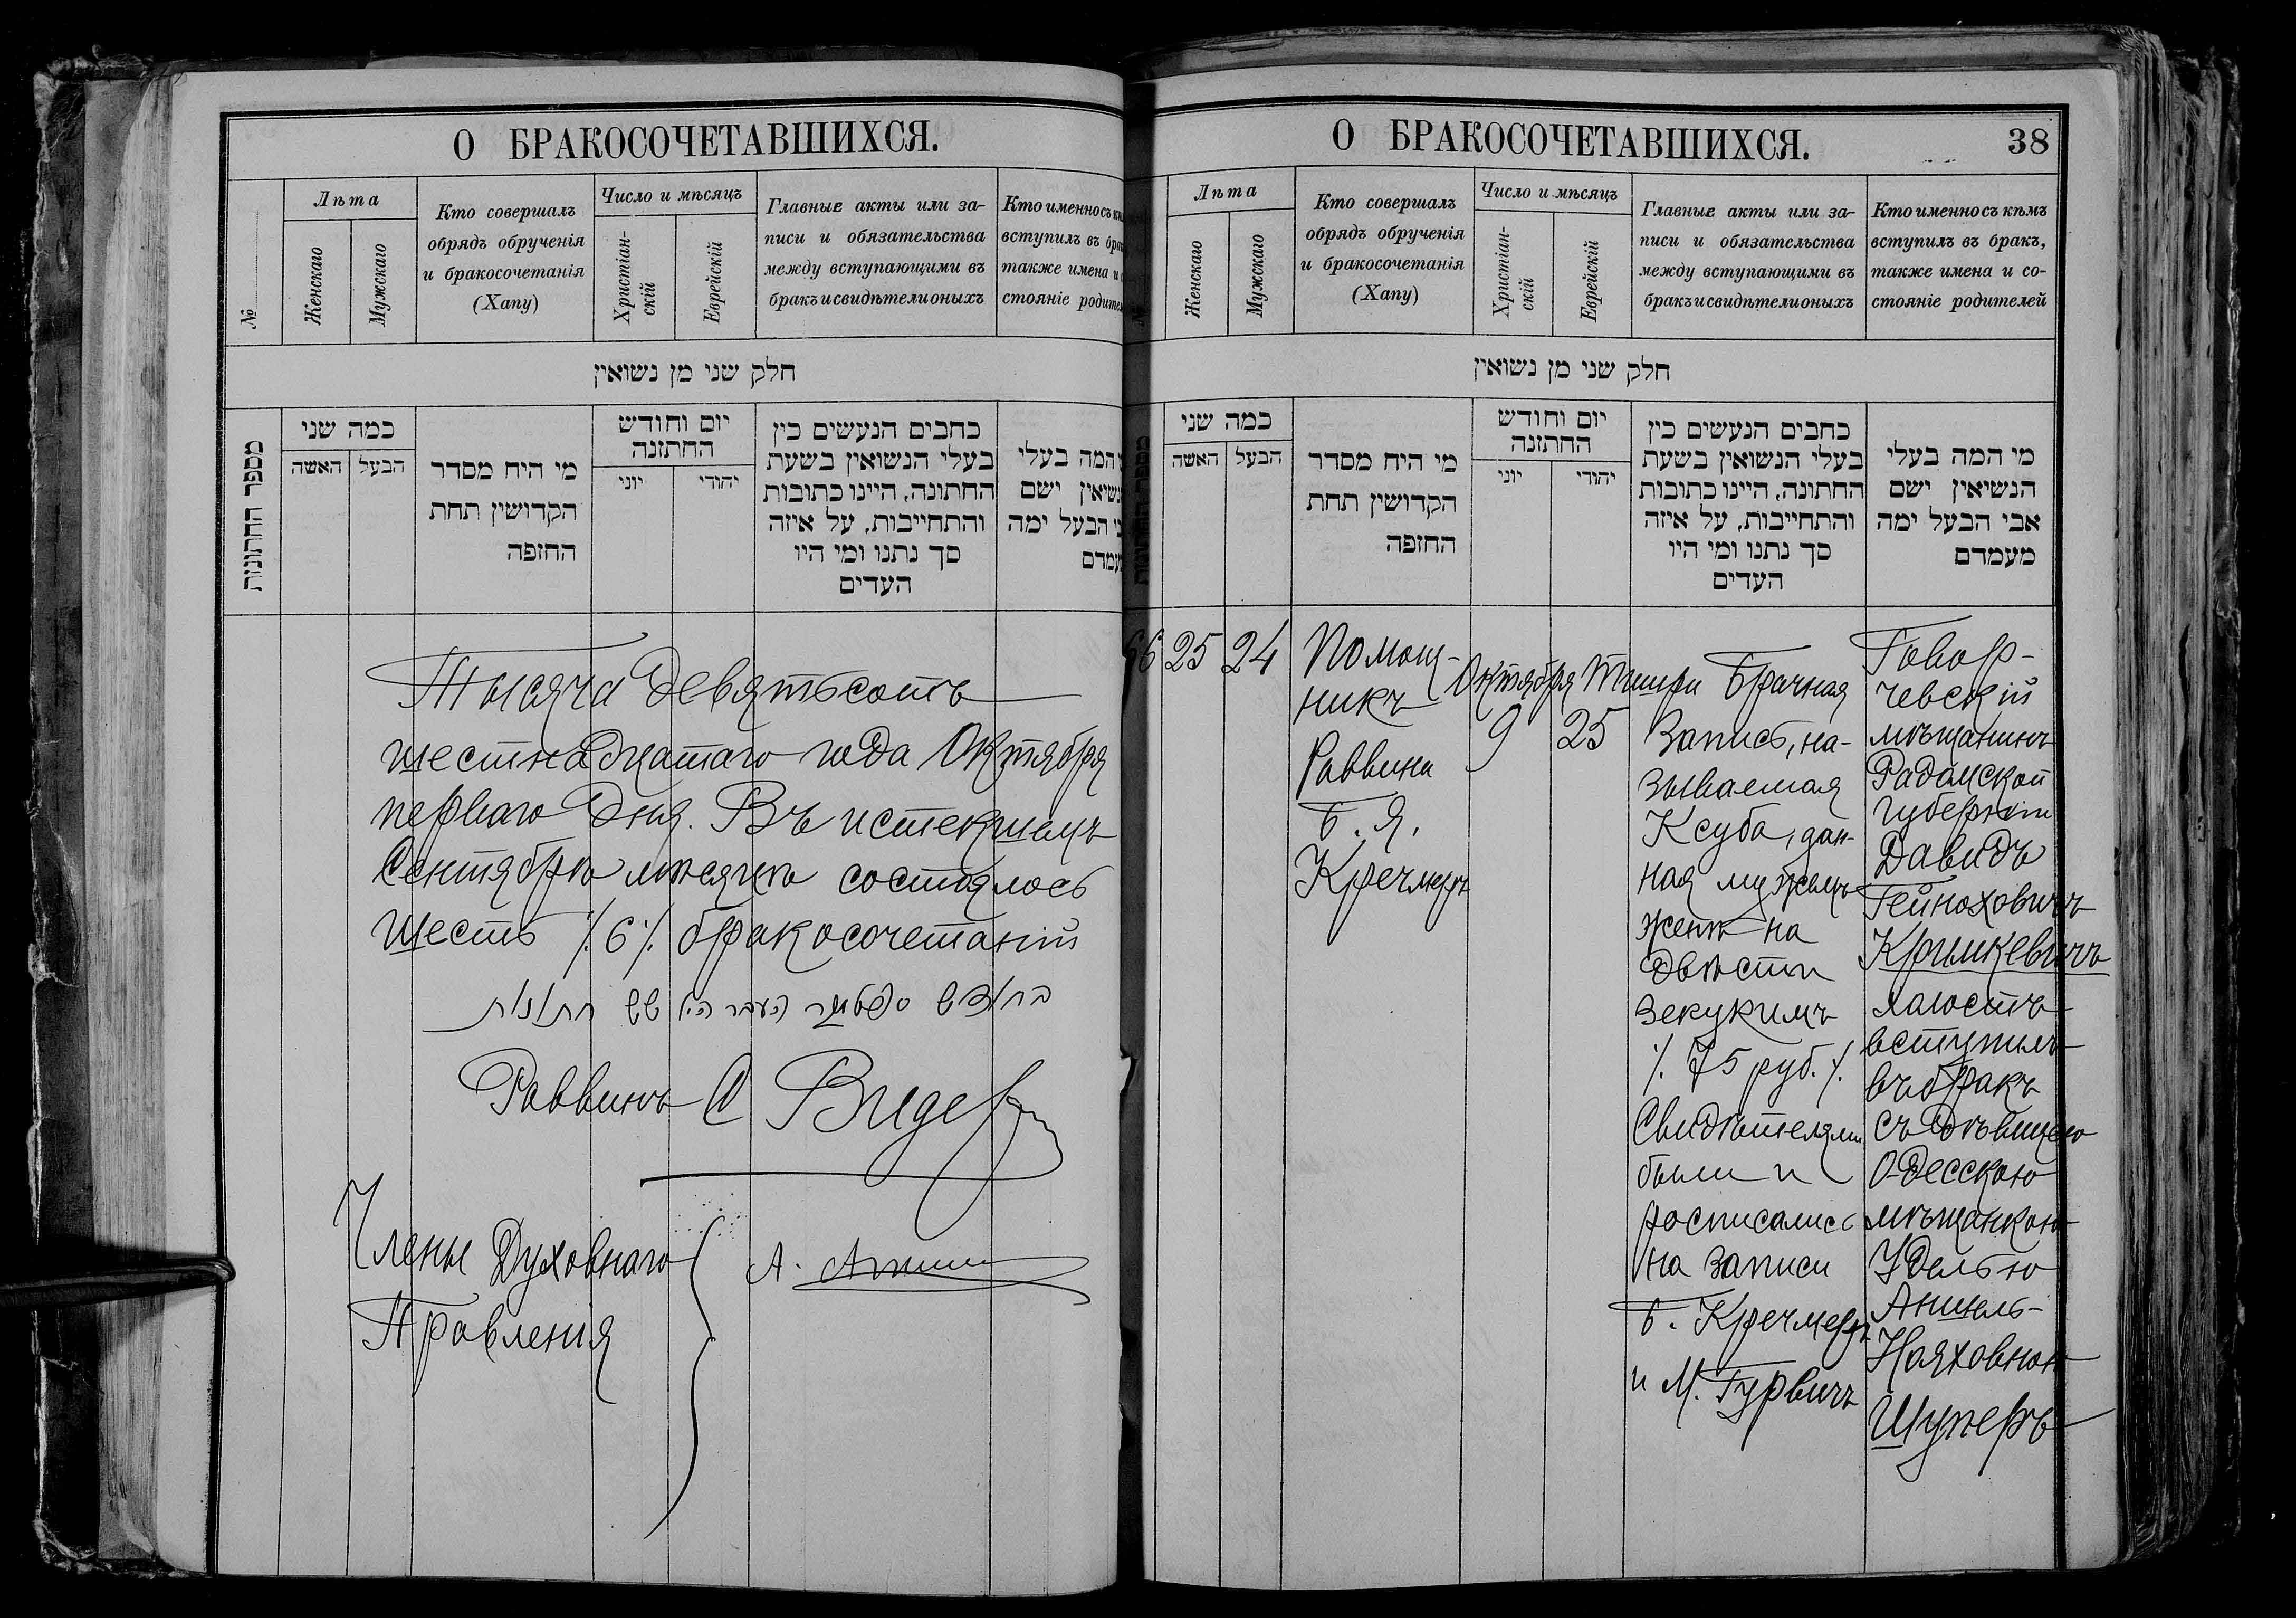 О БРАКОСОЧЕТАВШИХСЯ.
№
Лѣта
Женскаго
Мужскаго
Кто совершалъ
обрядъ обрученія
и бракосочетанія
(Хапу)
Число и мѣсяцъ
Христіан-
скій
Еврейскій
Главные акты или за-
писи и обязательства
между вступающими въ
бракъ и свидѣтели оныхъ
Кто именно съ
вступилъ въ
также имена и
стояніе
חלק שני מן נשואין
מספר החתונות
כמה שני
האשה
הבעל
מי היח מסדר
הקדושין תחת
החזפה
יום וחודש
החתזנה
יוני
יהודי
כחבים הנעשים כין
בעלי הנשואין בשעת
החתונה, היינו כתובות
והתחייבות, על איזה
סך נתנו ומי היו
העדים
המה בעלי
ישם
הבעל ימה
Тысяча девятьсотъ
шестнадцатаго года Октября
перваго дня. Въ истекшемъ
Сентябрѣ мѣсяцѣ состоялось
шесть ·/.6·/. бракосочетаній
בחודש סעפטעמבר העבר היו שש חתונות
Раввинъ
Члены Духовнаго
Правленія
А.
О БРАКОСОЧЕТАВШИХСЯ.
38
Лѣта
Женскаго
Мужскаго
Кто совершалъ
обрядъ обрученія
и бракосочетанія
(Хапу)
Число и мѣсяцъ
Христіан-
скій
Еврейскій
Главные акты или за-
писи и обязательства
между вступающими въ
бракъ и свидѣтели оныхъ
Кто именно съ кѣмъ
вступилъ въ бракъ,
также имена и со-
стояніе родителей
חלק שני מן נשואין
כמה שני
האשה
הבעל
מי היח מסדר
הקדושין תחת
החזפה
יום וחודש
החתזנה
יוני
יהודי
כחבים הנעשים כין
בעלי הנשואין בשעת
החתונה, היינו כתובות
והתחייבות, על איזה
סך נתנו ומי היו
העדים
מי המה בעלי
הנשיאין ישם
אבי הבעל ימה
מעמדם
66
25
24
Помощ-
никъ
Раввина
Б. Я.
Кречмеръ
Октября
9
Тишри
25
Брачная
Запись, на-
зываемая
Ксуба, дан-
ная мужемъ
женѣ на
двѣсти
зекукимъ
·/. 75 руб. ·/.
Свидѣтелями
были и
росписались
на записи
Б. Кречмеръ
и М. Гурвичъ
Говор-
чевскій
мѣщанинъ
Радомской
губерніи
Давидъ
Гейноховичъ
Кримкевичъ
холостъ
вступилъ
въ бракъ
съ дѣвицею
Одесскою
мѣщанкою
Удель-ю
Аншель-
Нояховною
Шуперъ